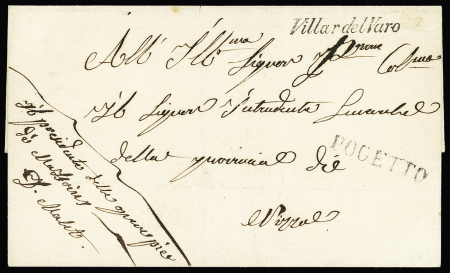 Villar del Varo
All' Ill.mo Signor P.rone Col.mo
Il Signor Intendente Generale
della provincia di
Nizza
POGETTO
Il presidente delle opere pie
di Massoins